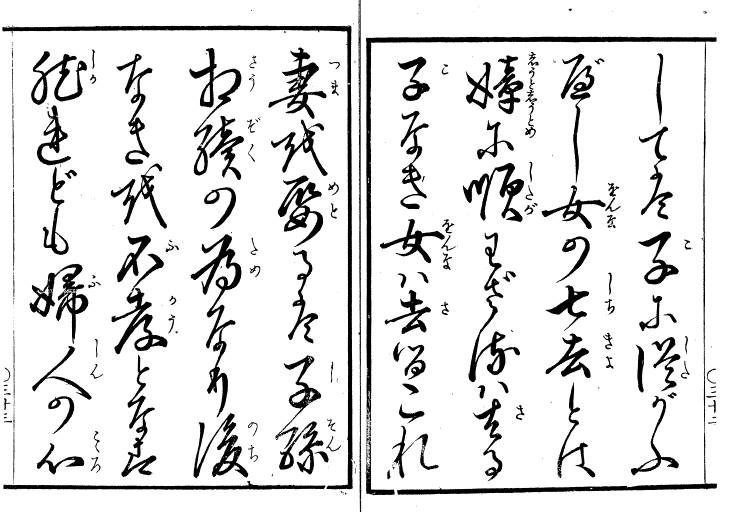 しては子に從がふ
べし女の七去とは
嫜に順わざるハ去る
子なき女ハ去るこれ
〇三十二
妻を娶るは子孫
相續の為なり後
なきを不孝となす
然れども婦人の心
〇三十三